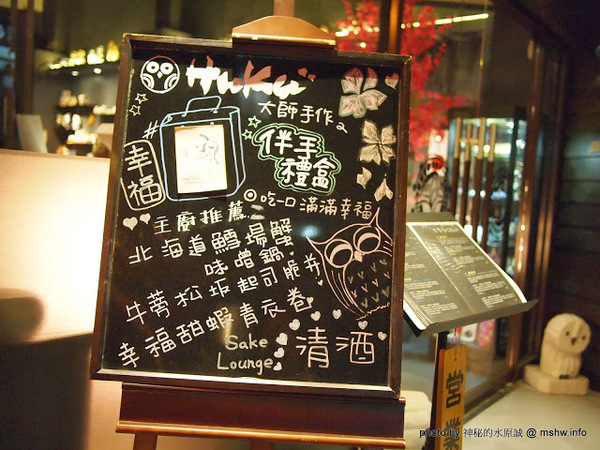 Hukuu
大師手作
伴手
禮盒
#
幸福
吃一口滿滿幸福
主廚推薦
北海道鱈場蟹
味噌鍋
牛蒡松坂起司脆片
幸福甜蝦青衣卷
Sake
Lounge
清酒
営業
photo by 神秘的水原誠 @ mshw.info